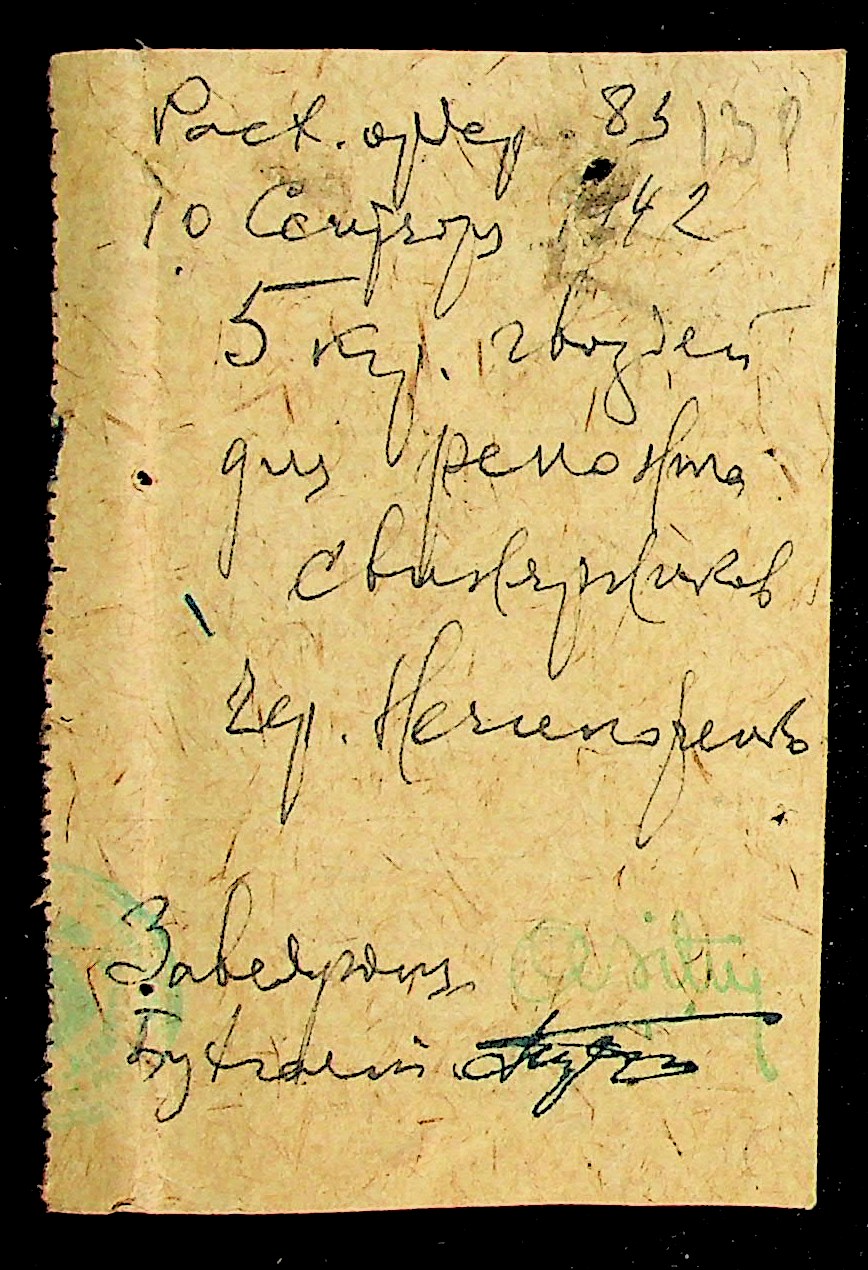 Расх. ордер 83
10 Сентября 1942
5 кгр. гвоздей
для ремонта
свинярников
чер. Нечипоренко
Заведующ.
Бухгалтер